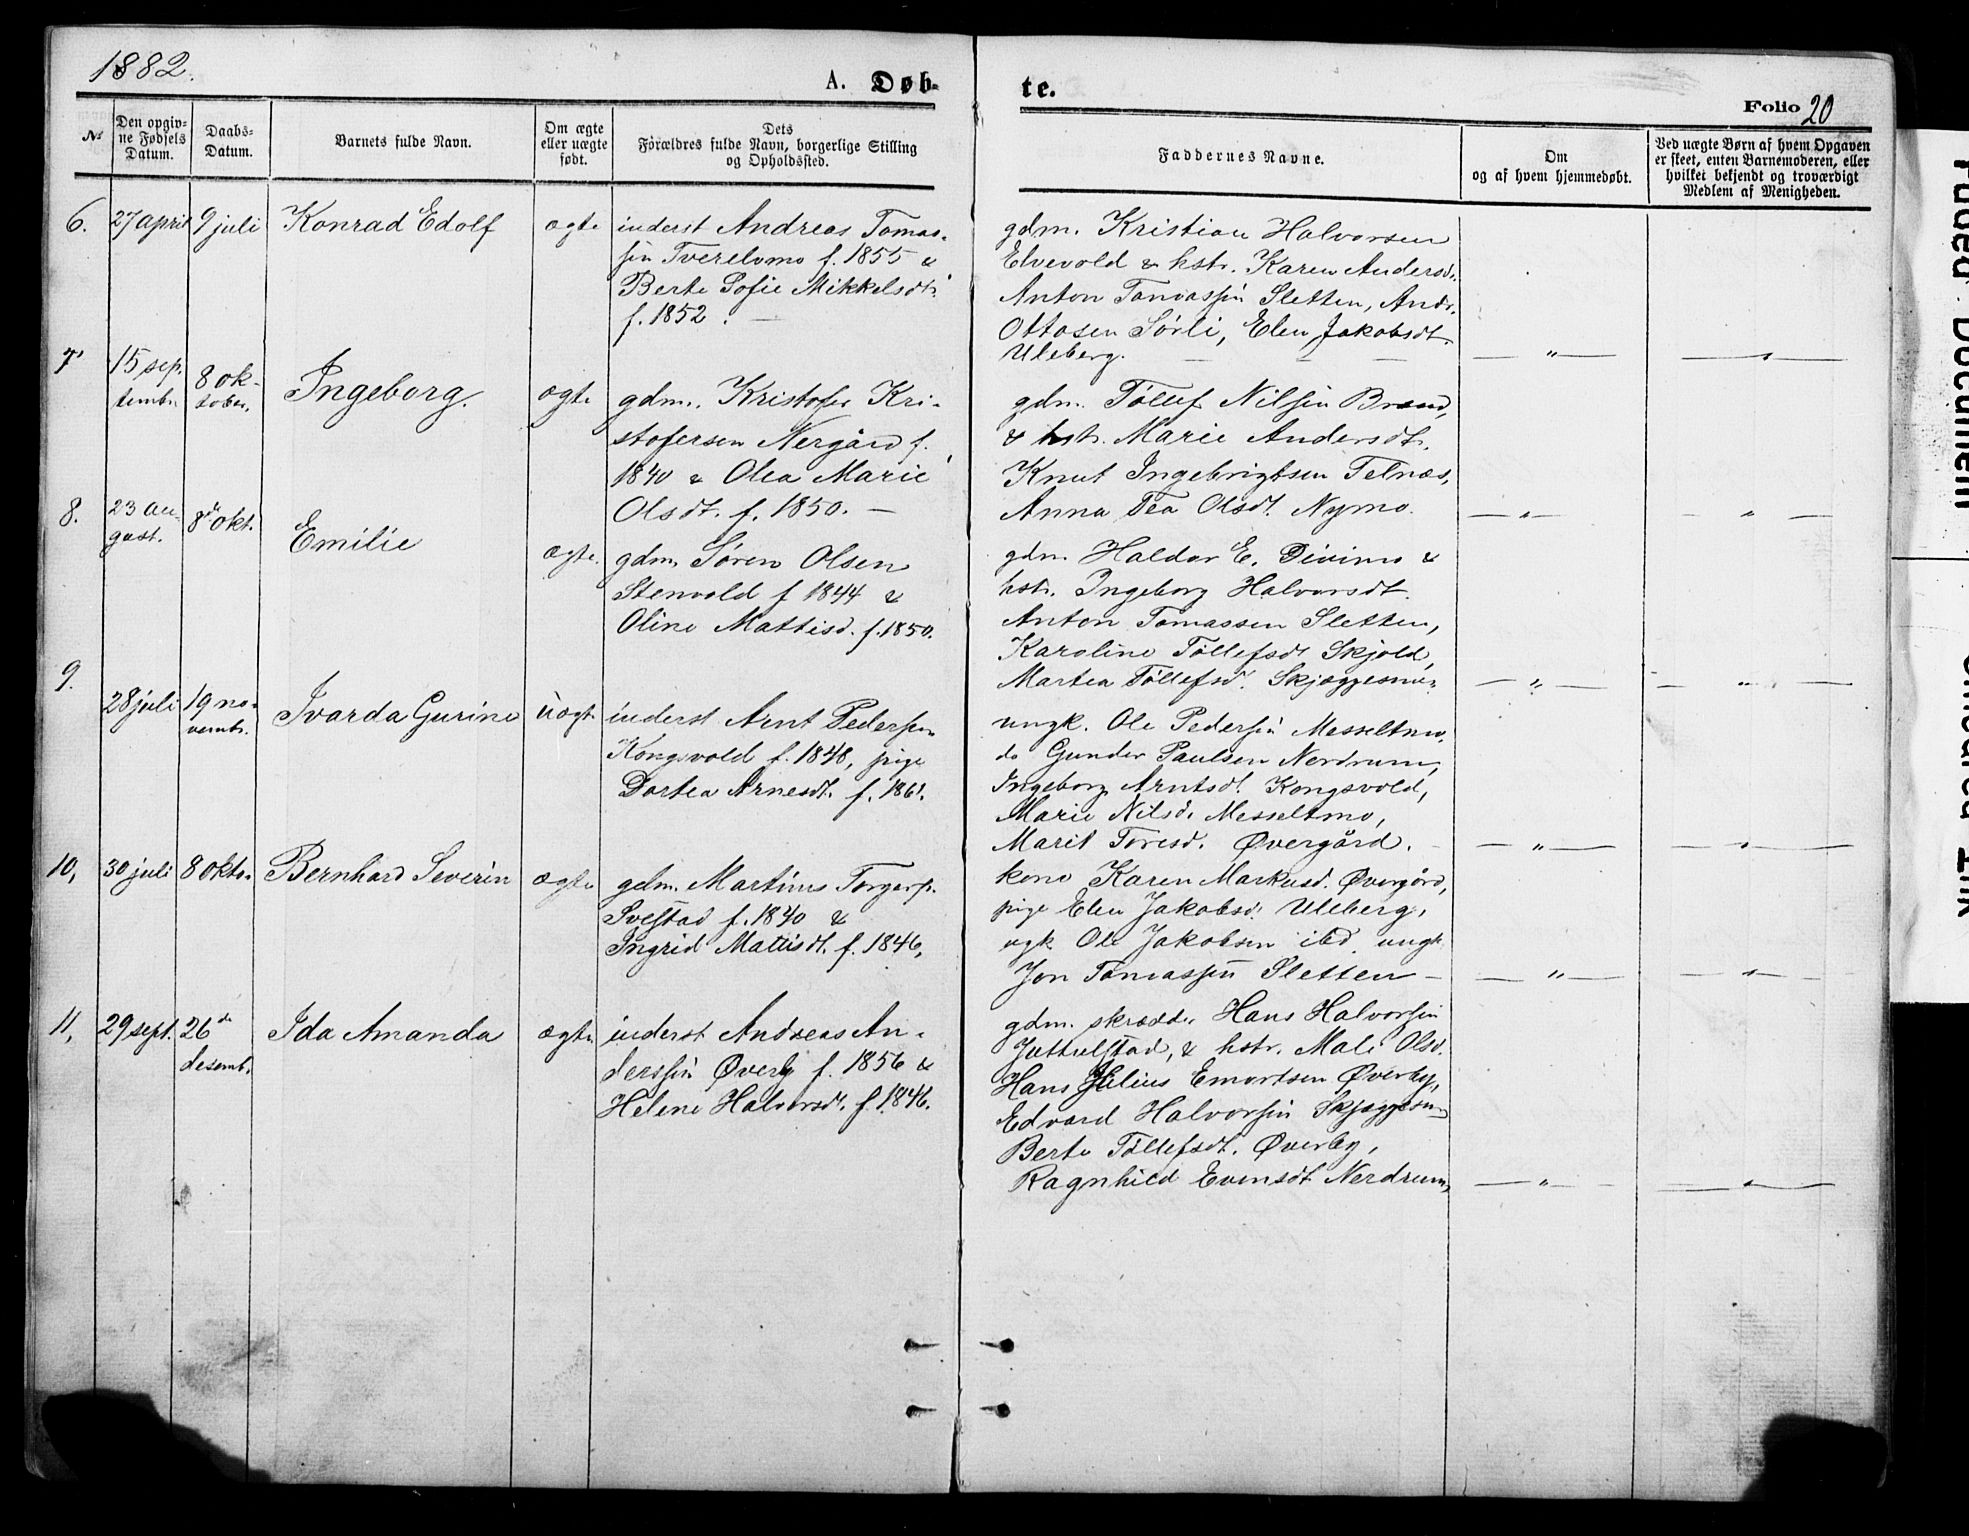 1882.
A. Døb-
te.
Folio 20
№
Den opgiv-
ne Fødsels
Datum.
Daabs-
Datum.
Barnets fulde Navn.
Om ægte
eller uægte
født.
Dets
Forældres fulde Navn, borgerlige Stilling
og Opholdssted.
Faddernes Navne.
Om
og af hvem hjemmedøbt.
Ved uægte Børn af hvem Opgaven
er skeet, enten Barnemoderen, eller
hvilket bekjendt og troværdigt
Medlem af Menigheden.
6.
27 april
9 juli
Konrad Edolf
ægte
inderst Andreas Tomas-
sen Tverelvmo f. 1855 &
Berte Sofie Mikkelsdt.
f. 1852. —
gdm. Kristian Halvorsen
Elvevold & hstr. Karen Andersdt.
Anton Tomassen Sletten, Andr.
Ottosen Sørli, Elen Jakobsdt.
Uleberg. — — —
— " —
— " —
7
15 sep.
tembr.
8 ok-
tober.
Ingeborg.
ægte
gdm. Kristofer Kri-
stofersen Nergård f.
1840 & Olea Marie
Olsdt. f. 1850. —
gdm. Tøllef Nilsen Brand,
& hstr. Marie Andersdt.
Knut Ingebrigtsen Felnæs,
Anna Tea Olsdt. Nymo.
— " —
— " —
8.
23 au-
gust.
8de okt.
Emilie
ægte.
gdm. Søren Olsen
Stenvold f 1844 &
Oline Mattisd. f. 1850.
gdm. Haldor E. Divimo &
hstr. Ingeborg Halvorsdt.
Anton Tomassen Sletten,
Karoline Tøllefsdt Skjold,
Martea Tøllefsd. Skjæggesnes
— " —
— " —
9.
28 juli
19 no-
vembr.
Ivarda Gurine
uægte
inderst Arnt Pedersen
Kongsvold f. 1848, pige
Dortea Arnesdt. f. 1861.
ungk. Ole Pedersen Messeltmo,
do Gunder Paulsen Nordrum,
Ingeborg Arntsdt. Kongsvold,
Marie Nilsd. Messeltmo,
Marit Toresd. Øvergård. —
— " —
— " —
10,
30 juli
8 okto.
Bernhard Severin
ægte
gdm. Martinus Torgers.
Svestad f. 1840 &
Ingrid Mattisdt. f. 1846,
kone Karen Markusd. Øvergård,
pige Elen Jakobsd. Uleberg,
ugk Ole Jakobsen ibd, ungk
Jon Tomassen Sletten —
— " —
— " —
11,
29 sept.
26de
desemb.
Ida Amanda
ægte
inderst Andreas An-
derssen Øverby f. 1856 &
Helene Halvorsdt. f. 1846.
gdm. skrædd. Hans Halvorsen
Juttulstad, & hstr. Male Olsd.
Hans Julius Emertsen Øverby,
Edvard Halvorsen Skjæggesnes
Berte Tøllefsdt. Øverby,
Ragnhild Evensdt Nerdrum,
— " —
— " —